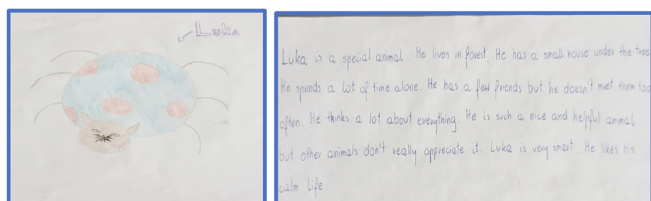 Luka
Luka is a special animal. He lives in forest. He has a small house under the tree.
He spends a lot of time alone. He has a few friends but he doesn't meet them too
often. He thinks a lot about everything. He is such a nice and helpful animal
but other animals don't really appreciate it. Luka is very smart. He likes his
calm life